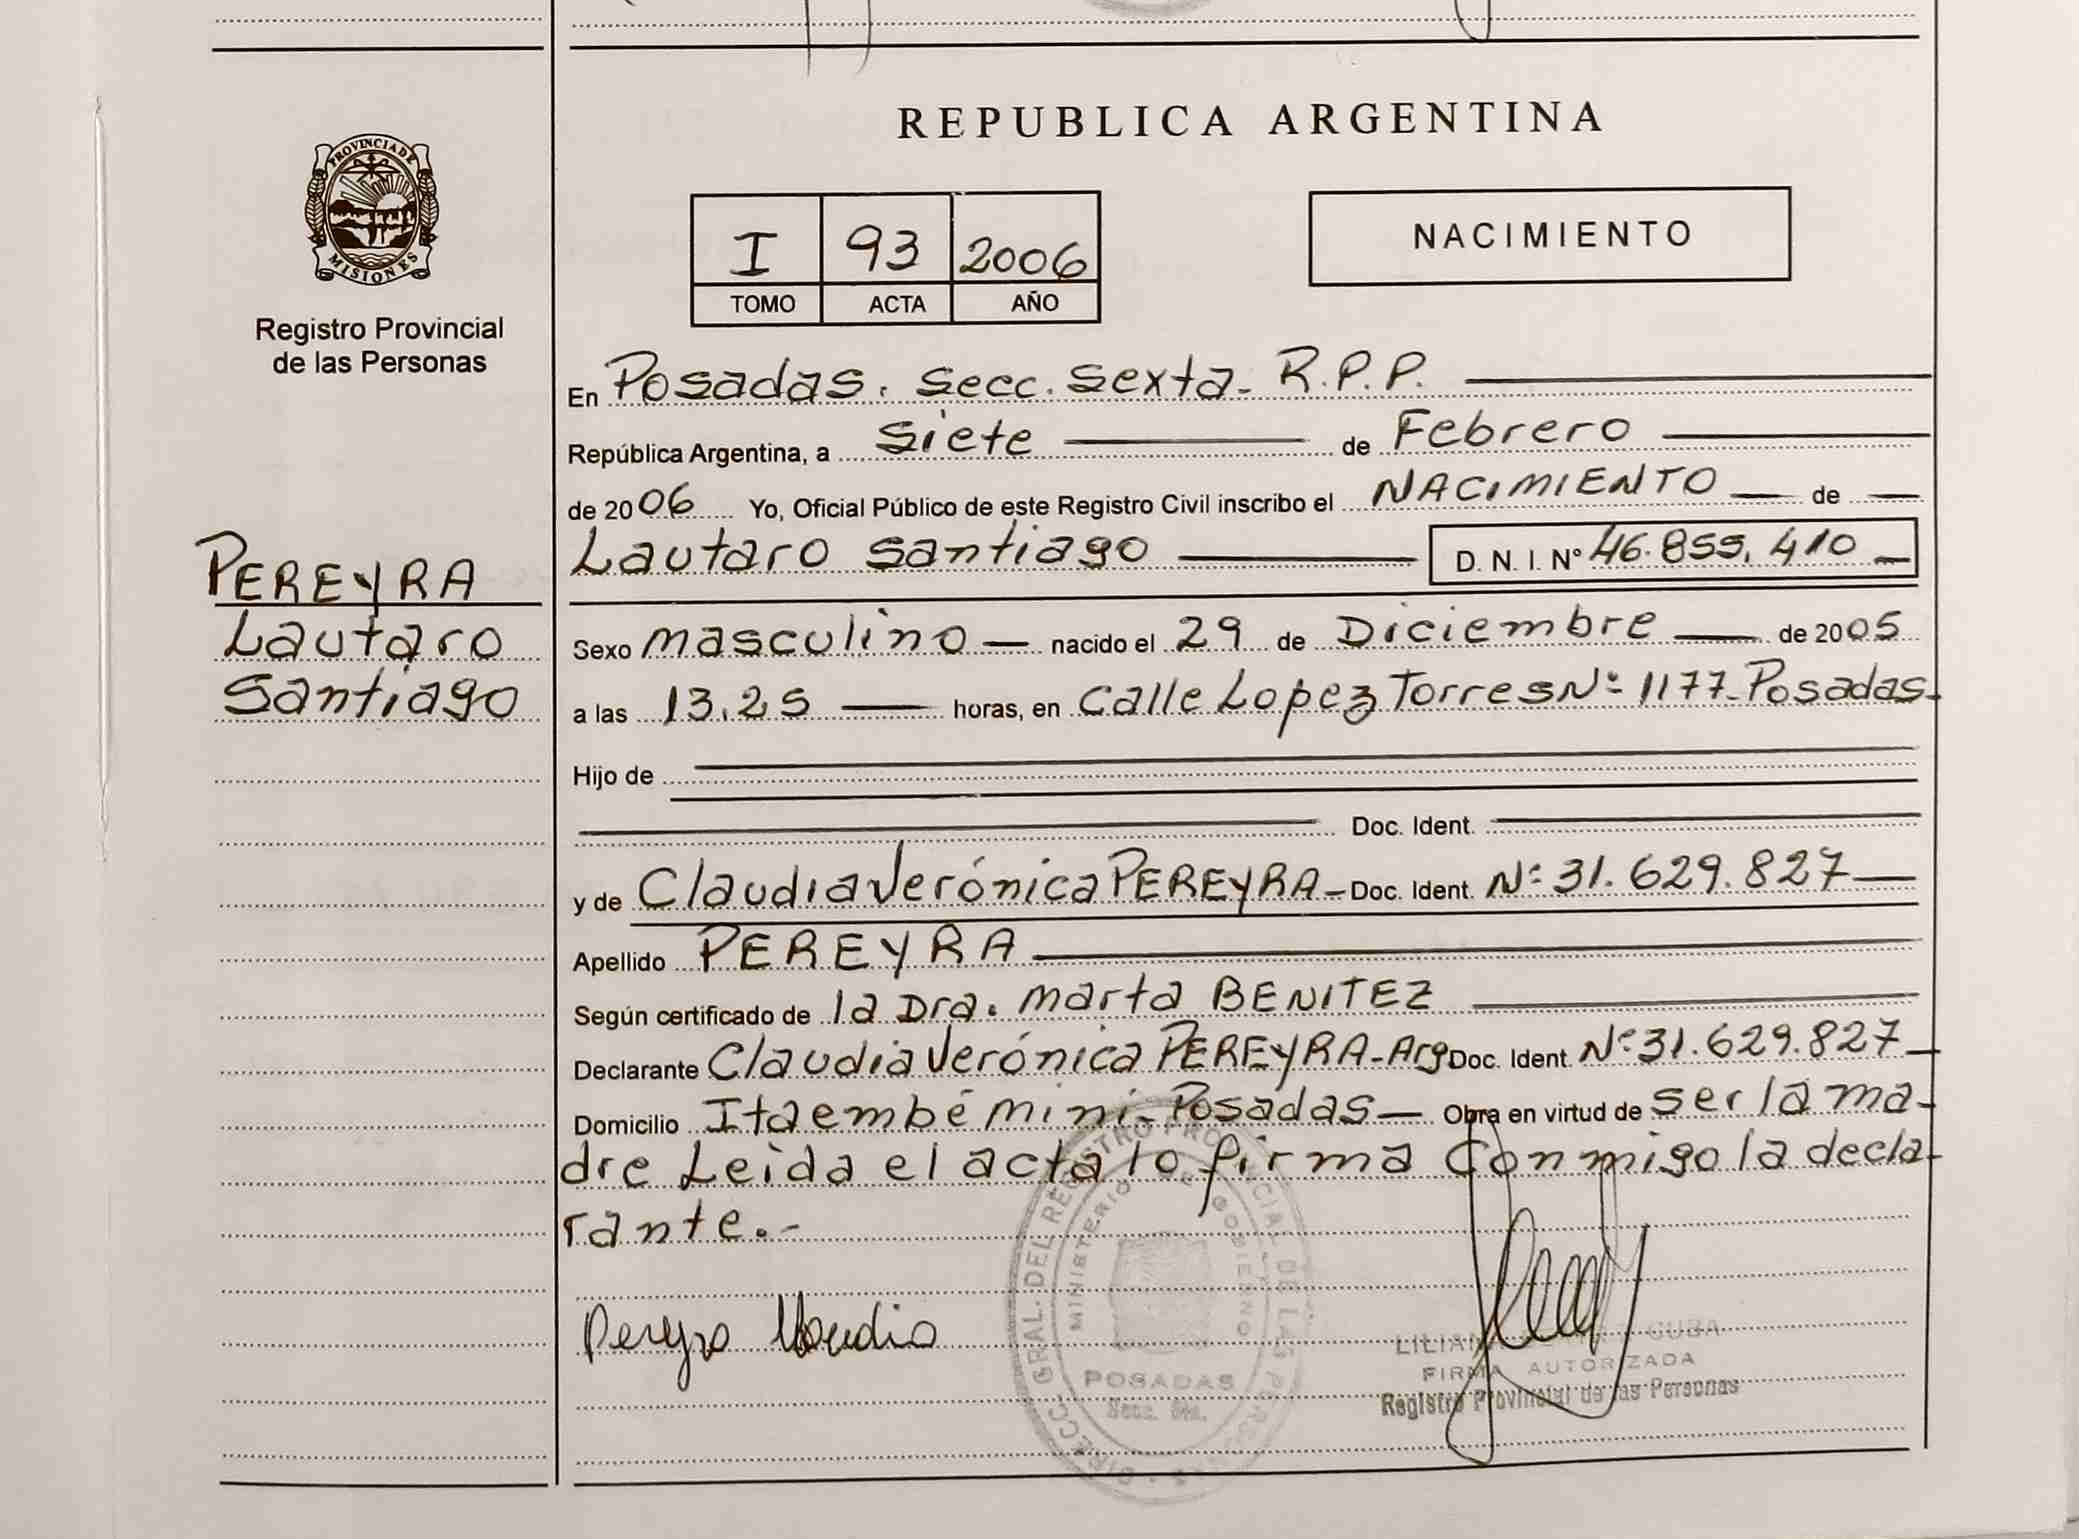 REPUBLICA ARGENTINA
PROVINCIA DE
MISIONES
Registro Provincial
de las Personas
I 93 2006
TOMO ACTA AÑO
NACIMIENTO
En Posadas. Secc. Sexta - R.P.P.
República Argentina, a siete de Febrero
de 2006 Yo, Oficial Público de este Registro Civil inscribo el NACIMIENTO de
PEREYRA
Lautaro
Santiago
Lautaro Santiago D. N. I. Nº 46.855.410
Sexo masculino nacido el 29 de Diciembre de 2005
a las 13.25 horas, en Calle Lopez Torres Nº 1177 - Posadas -
Hijo de
Doc. Ident.
y de Claudia Verónica PEREYRA - Doc. Ident. Nº 31.629.827
Apellido PEREYRA
Según certificado de la Dra. Marta BENITEZ
Declarante Claudia Verónica PEREYRA - Arg Doc. Ident. Nº 31.629.827
Domicilio Itaembé miní - Posadas Obra en virtud de ser la ma-
dre Leida el acta lo firma Conmigo la decla-
rante.-
Pereyra Claudia
DIRECC. GRAL. DEL REGISTRO PROVINCIAL DE LAS PERSONAS
MINISTERIO DE GOBIERNO
POSADAS
Secc. 6ta.
CUBA
FIRMA AUTORIZADA
Registro Provincial de las Personas